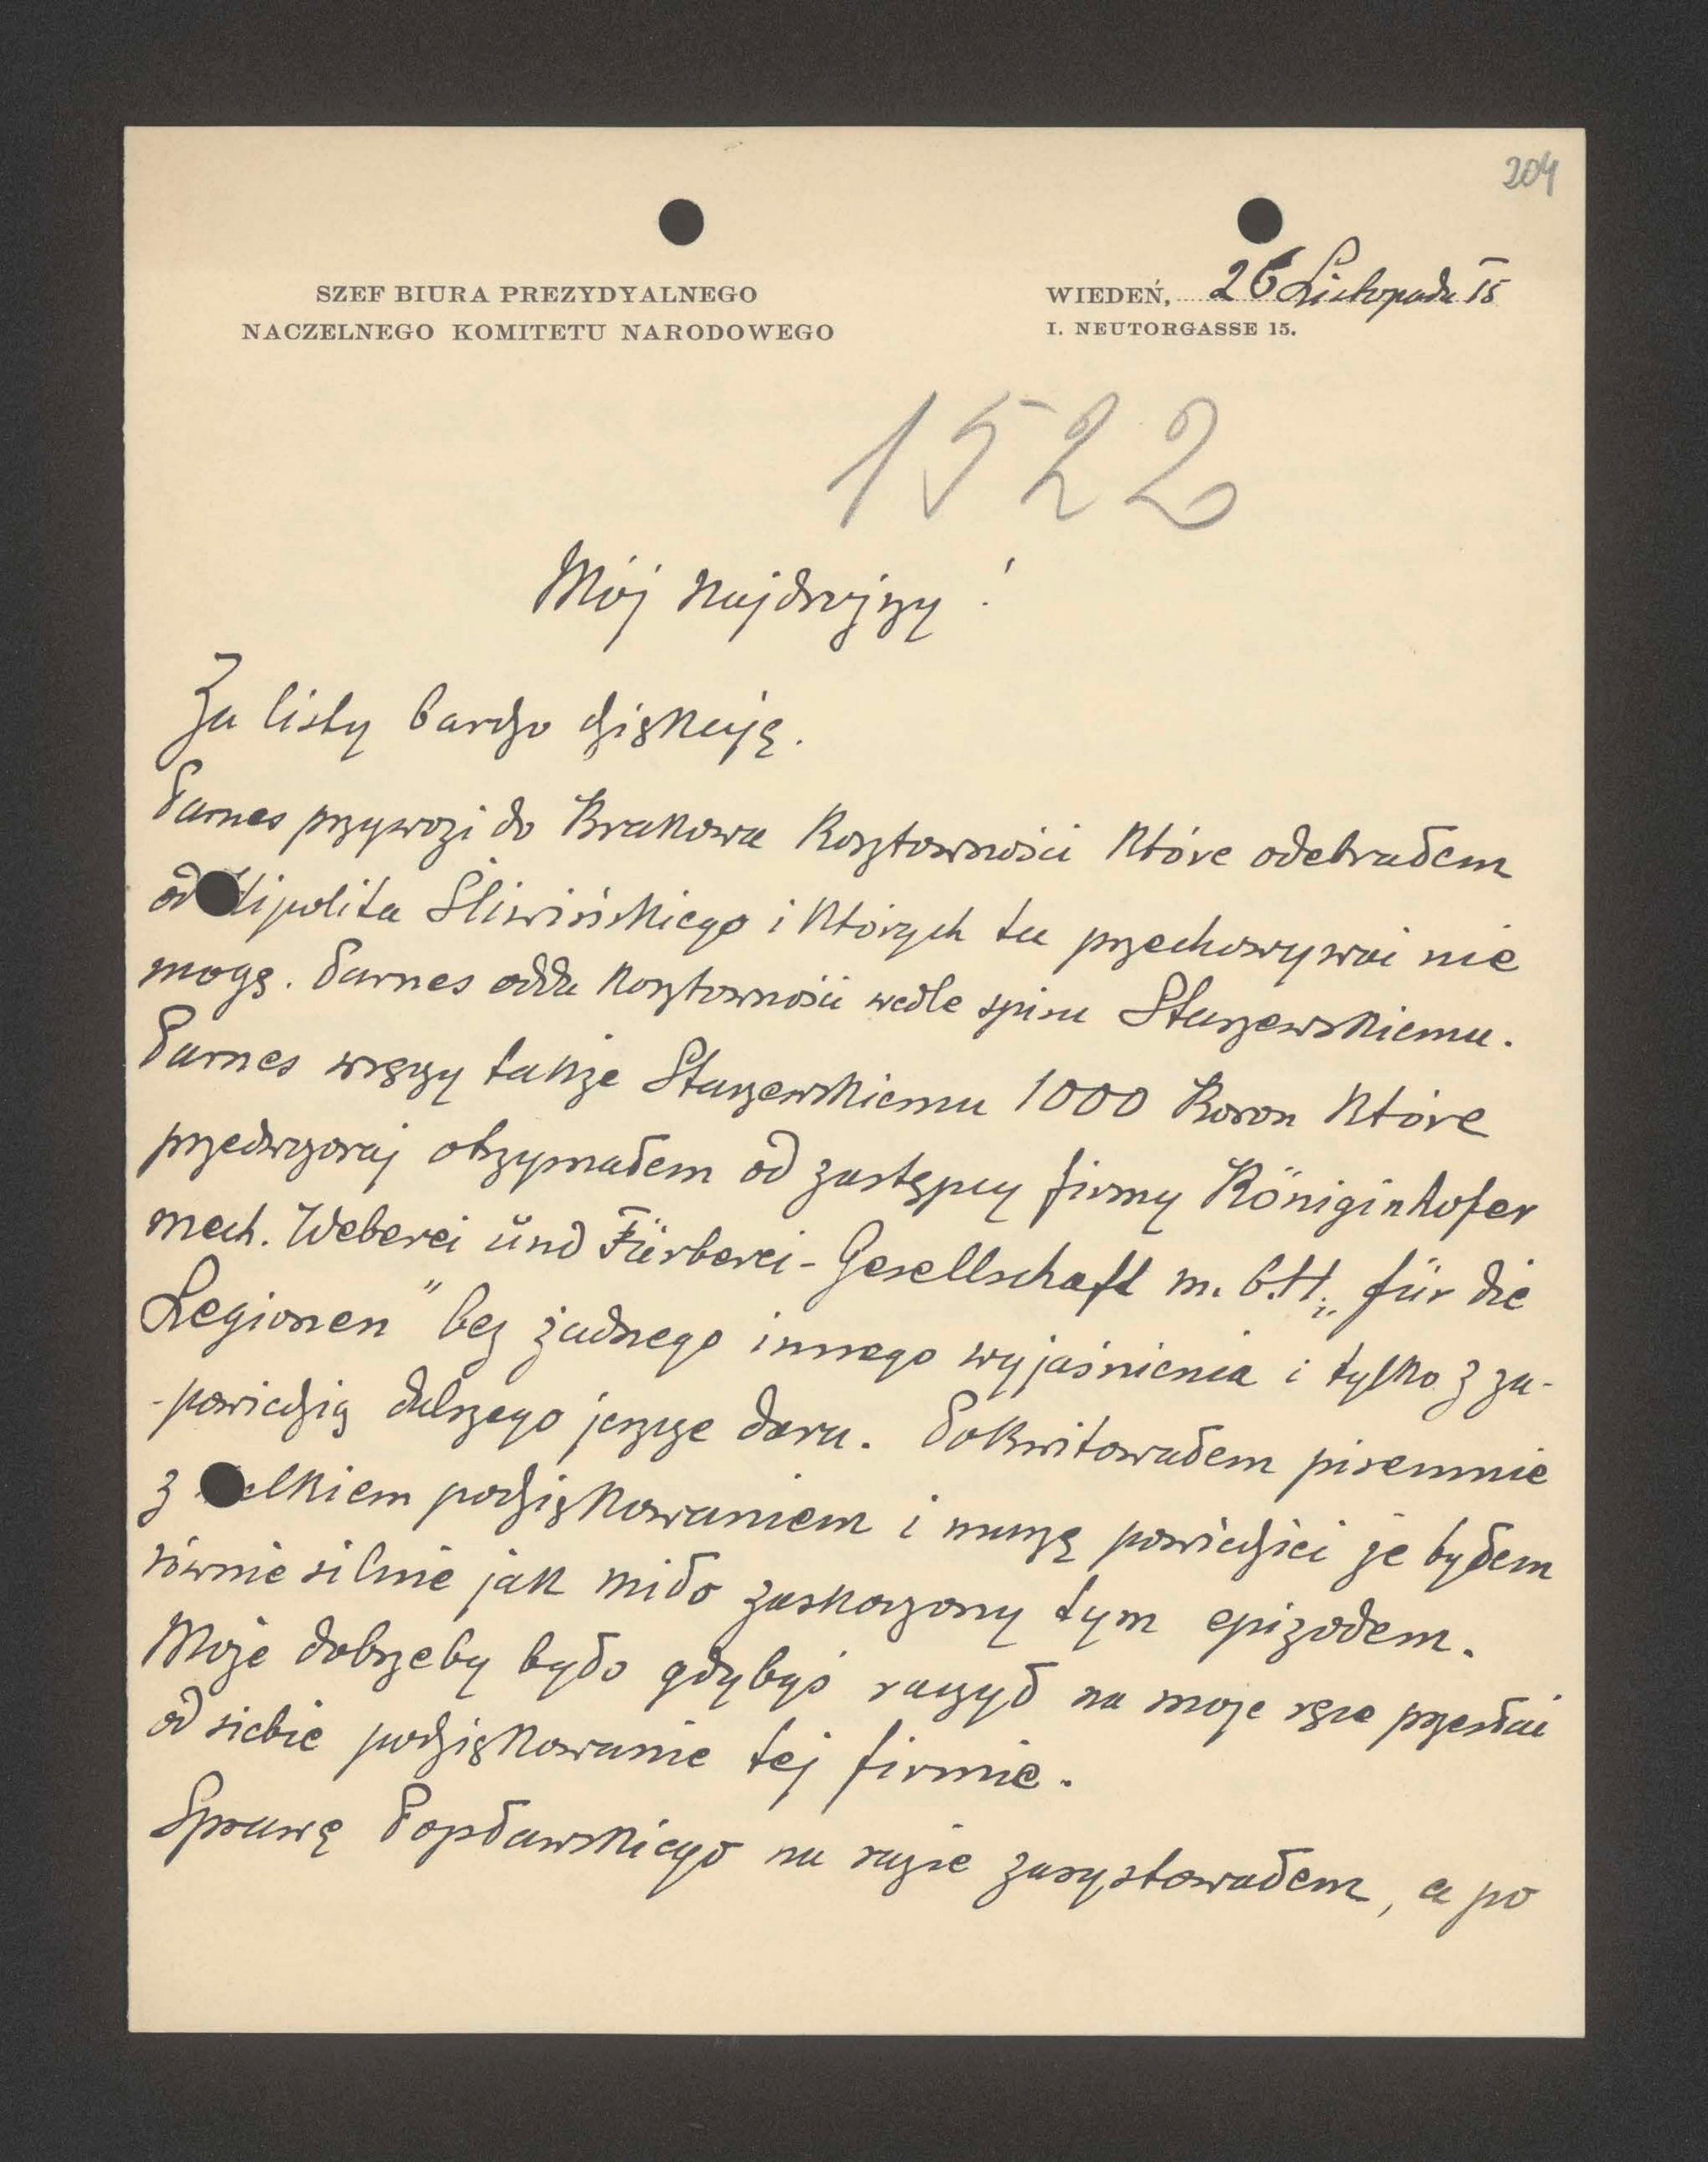 204
SZEF BIURA PREZYDYALNEGO
NACZELNEGO KOMITETU NARODOWEGO
WIEDEŃ, 26 Listopada 15
I. NEUTORGASSE 15.
1522
Mój Najdroższy!
Za listy bardzo dziękuję.
Parnes przywozi do Krakowa kosztowności które odebrałem
od Hipolita Śliwińskiego i których tu przechowywać nie
mogę. Parnes odda kosztowności wedle spisu Staszewskiemu.
Parnes wręczy także Staszewskiemu 1000 Koron które
przedwczoraj otrzymałem od zastępcy firmy Königinhofer
mech. Weberei und Färberei-Gesellschaft m. b. H. „für die
Legionen" bez żadnego innego wyjaśnienia i tylko z za-
-powiedzią dalszego jeszcze daru. Pokwitowałem pisemnie
z wielkiem podziękowaniem i muszę powiedzieć że byłem
równie silnie jak miło zaskoczony tym epizodem.
Może dobrzeby było gdybyś raczył na moje ręce przesłać
od siebie podziękowanie tej firmie.
Sprawę Popławskiego na razie zasystowałem, a po